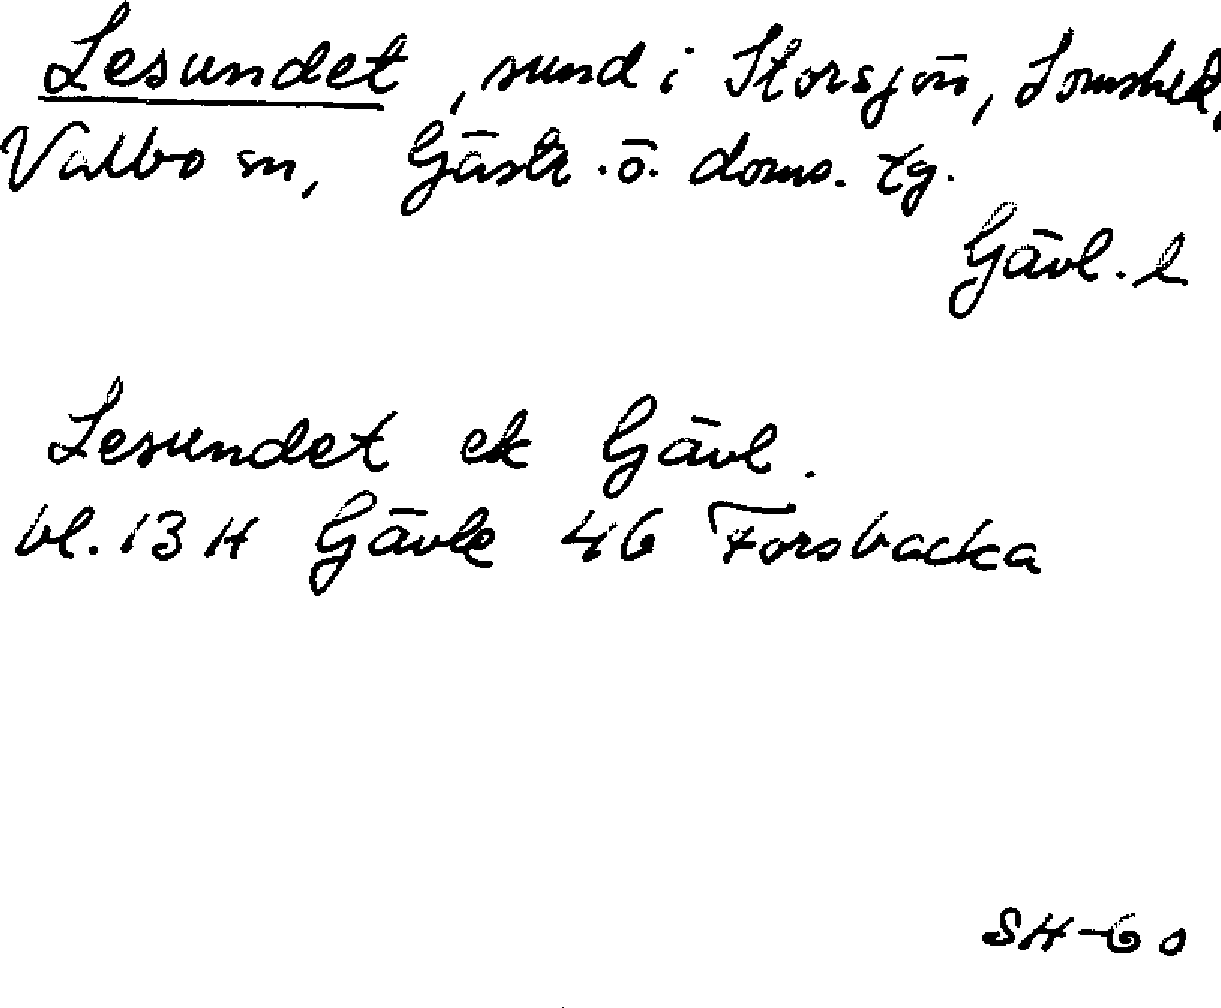 Lesundet, sund i Storsjön, Lomshed,
Valbo sn, Gästr. ö. doms. tg.
Gävl. l
Lesundet ek Gävl.
bl. 13 H Gävle 4b Forsbacka
SH-60